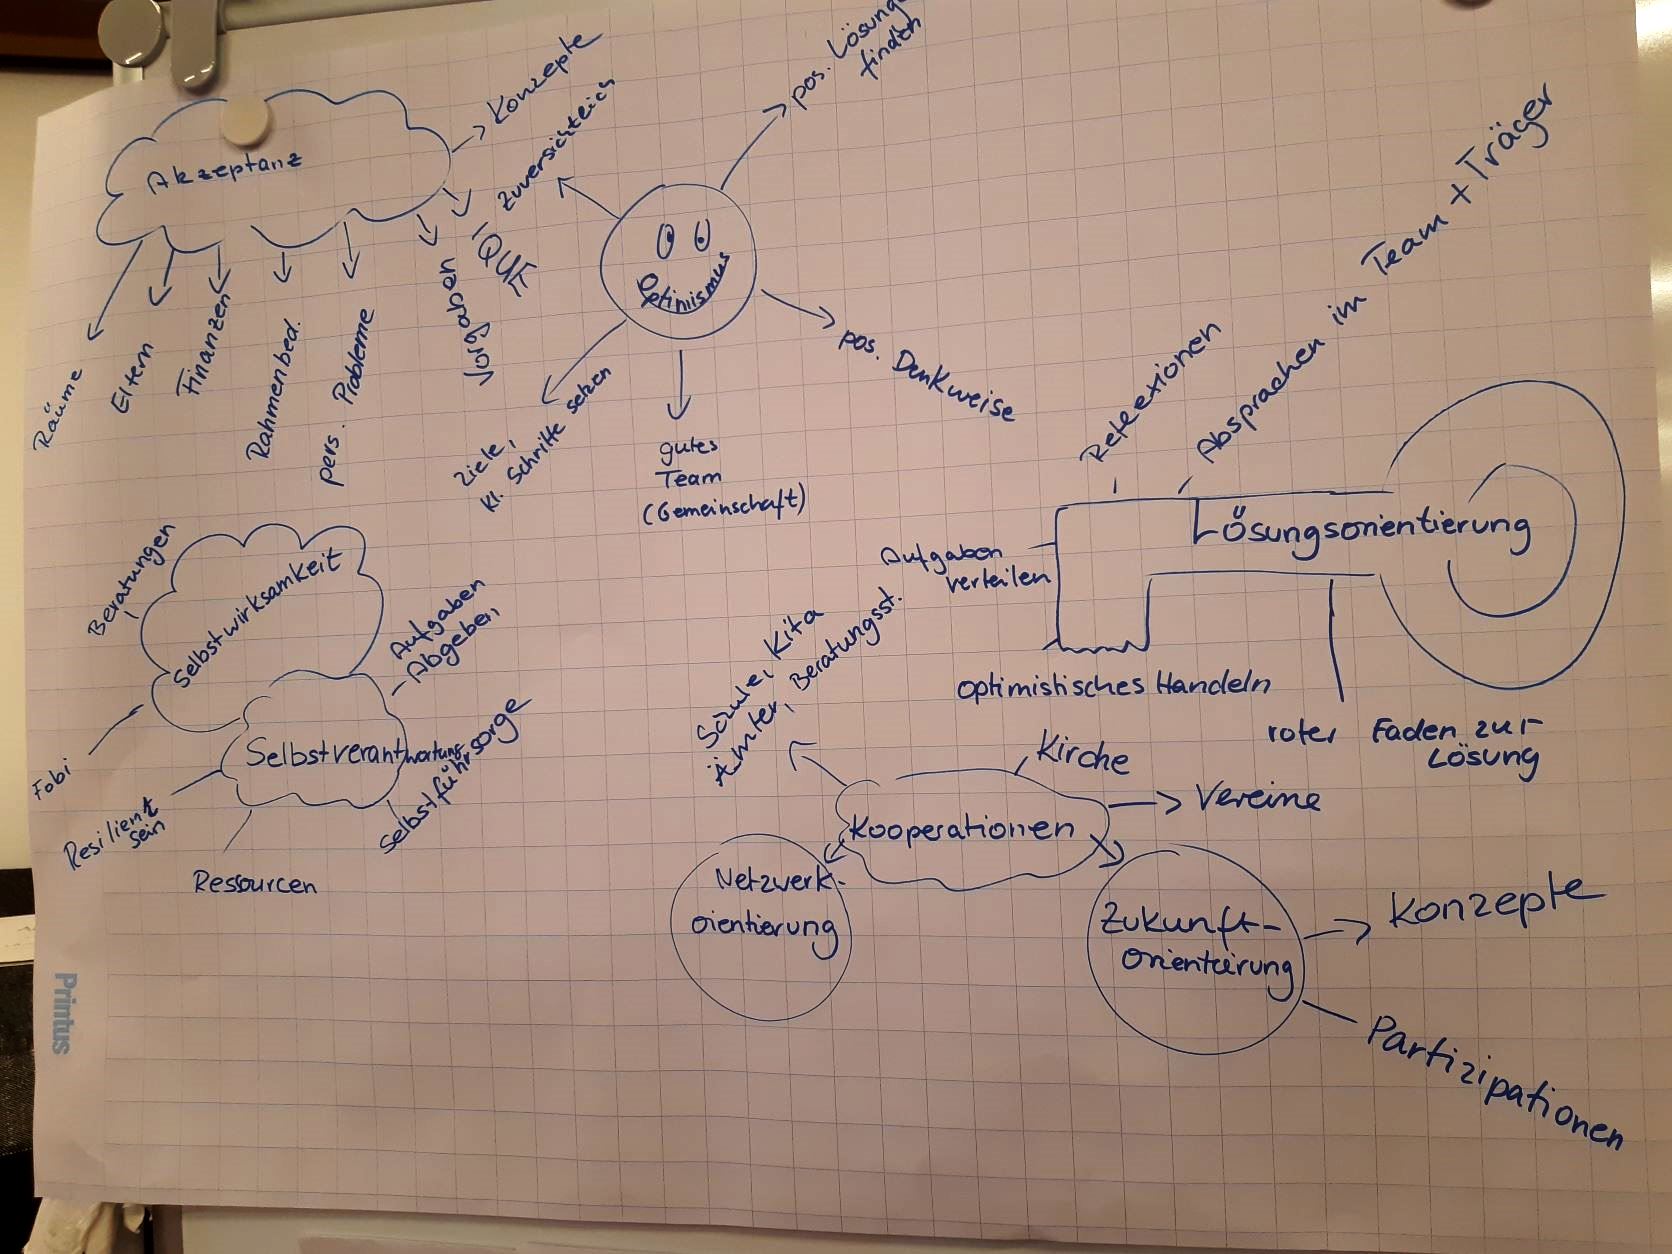 Akzeptanz
Konzepte
IQUE
Vorgaben
pers. Probleme
Rahmenbed.
Finanzen
Eltern
Räume
Optimismus
zuversichtlich
pos. Lösung
finden
pos. Denkweise
gutes
Team
(Gemeinschaft)
Ziele,
kl. Schritte setzen
Lösungsorientierung
Reflexionen
Absprachen im Team + Träger
Aufgaben
verteilen
optimistisches Handeln
roter Faden zur
Lösung
Selbstwirksamkeit
Beratungen
Fobi
Selbstverantwortung
Aufgaben
Abgeben
Selbstführsorge
Ressourcen
Resilient
sein
Kooperationen
Schule, Kita
Ämter, Beratungsst.
Kirche
Vereine
Netzwerk-
orientierung
Zukunft-
orientierung
Konzepte
Partizipationen
Printus